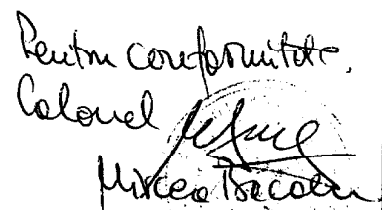 Pentru conformitate,
Colonel
Mircea